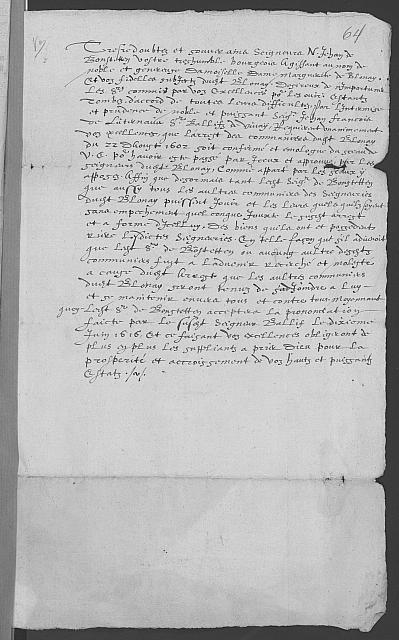 64
Tresredoubtez et souverains Seigneurs N. Jehan de
Bonstetten vostre treshumble bourgeois agissant au nom de
noble et genereuse Damoiselle Dame Marguerite de Blonay
et voz fidelles subiects dudit Blonay, Desireux de
les Srs commis par voz Excellences po' les ouir estants
tombé d'accord de toutes leurs difficultés, Par l'entremise
et prudence de noble et puissant Seigr Jehan François
de Ballif de Vivey Requierent unanimement
voz excellences que l'arrest des communiers dudit Blonay
du 22 D'Aougst 1602 soit confirmé et emologué du sceau de
V. E. po' havoir esté passé par iceux et approuvé par les
seigneurs dudit Blonay, Comme appart par les sceaux y
apposés. Affin que desormais tant ledit Seigr de Bonstetten
que aussy tous les aultres communiers des Seigneuries
dudit Blonay puissent jouir et les leurs
sans empechement quelconque jouxte le susdit arrest
et a forme d'icelluy, Des biens qu'ils ont et possedent
riere lesdictes Seigneuries. En telle façon que s'il advenoit
que ledit Sr de Bostetten ou aucung aultre desdits
communiers fust a l'advenir recerché et molesté
a cause dudit arrest que les aultres communiers
dudit Blonay seront tenus de s'adjoindre a luy
et se maintenir envers tous et contre tous moyennant
que ledit Sr de Bongstetten acceptera la prononciation
faicte par le susdit Seigneur Ballif le dixieme
Juin 1616. Et ce faisant voz excellences obligeront de
plus en plus les suppliants a prier Dieu pour la
prosperité et accroissement de voz hauts et puissants
Estats.